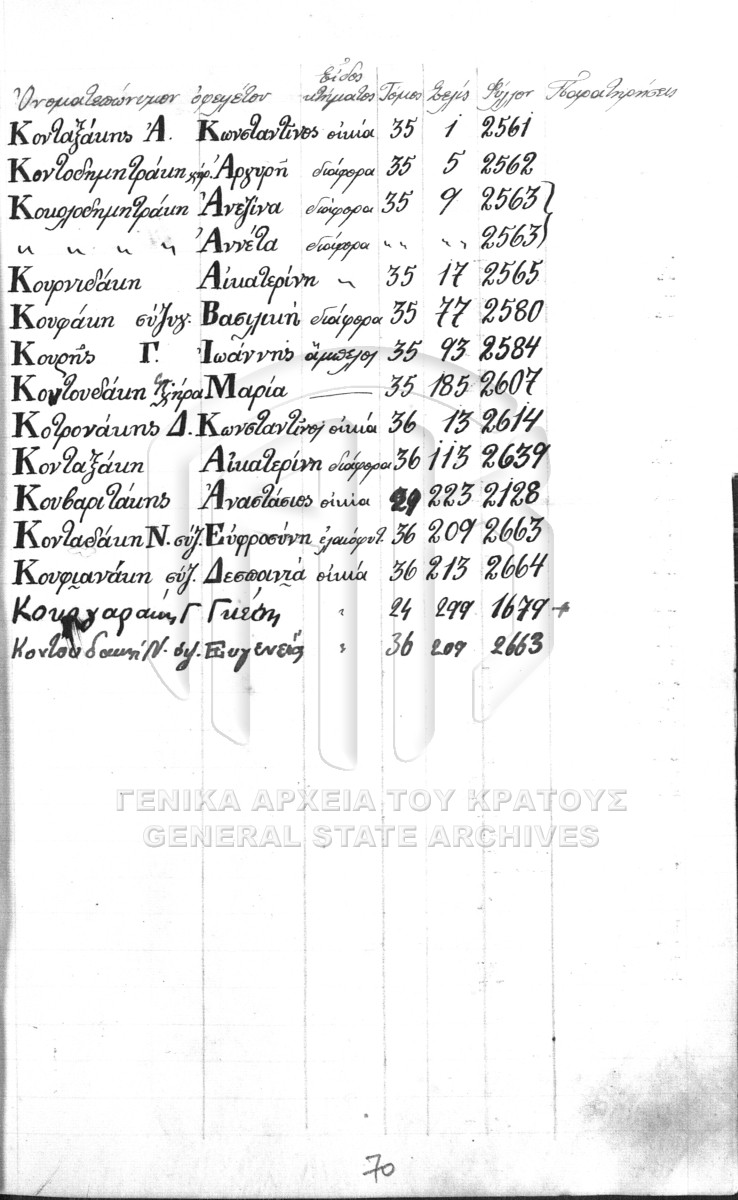 Ὀνοματεπώνυμον ὀφειλέτου Εἶδος κτήματος Τόμος Σελίς Φύλλον Παρατηρήσεις
Κονταξάκης Ἀ. Κωνσταντῖνος οἰκία 35 1 2561
Κοντοδημητράκη χήρ. Ἀργυρῆ διάφορα 35 5 2562
Κουκλοδημητράκη Ἀνεζίνα διάφορα 35 9 2563
〃 〃 〃 〃 Ἀννέτα διάφορα 〃 〃 2563
Κουρνιδάκη Αἰκατερίνη 〃 35 17 2565
Κουφάκη σύζυγ. Βασιλική διάφορα 35 77 2580
Κουρῆς Γ. Ἰωάννης ἄμπελος 35 93 2584
Κοντουδάκη χήρα Μαρία — 35 185 2607
Κοτρονάκης Δ. Κωνσταντῖνος οἰκία 36 13 2614
Κονταξάκη Αἰκατερίνη διάφορα 36 113 2639
Κουβαριτάκης Ἀναστάσιος οἰκία 29 223 2128
Κονταδάκη Ν. σύζ. Εὐφροσύνη ἐλαιόφυτ. 36 209 2663
Κουφιανάκη σύζ. Δεσποινιά οἰκία 36 213 2664
Γ 〃 24 299 1679 +
Κοντουδάκη Ν. συζ. Ευγενεία 〃 36 209 2663
ΓΕΝΙΚΑ ΑΡΧΕΙΑ ΤΟΥ ΚΡΑΤΟΥΣ
GENERAL STATE ARCHIVES
70